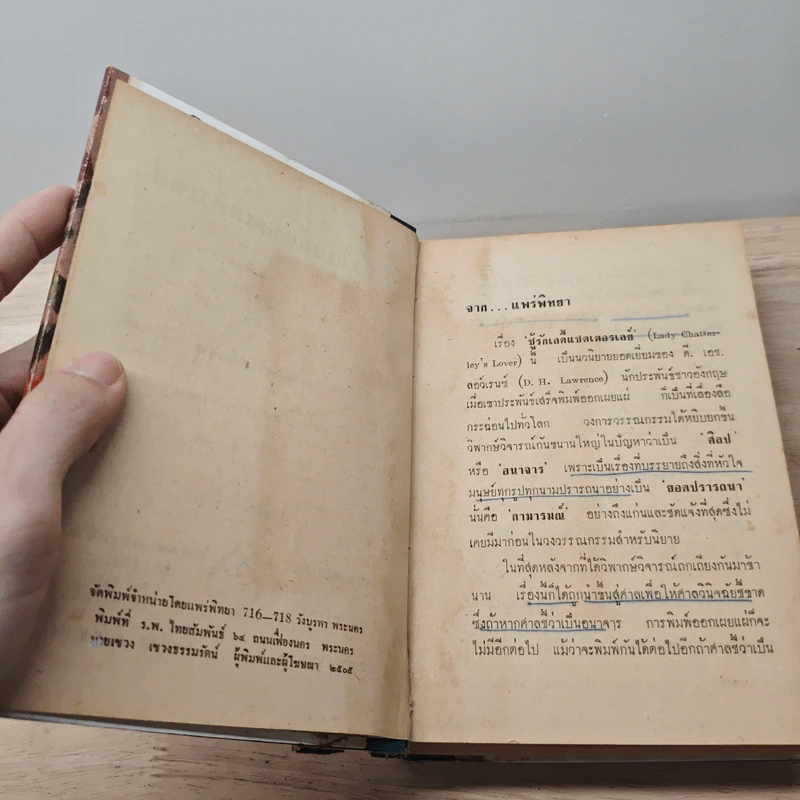 จัดพิมพ์จำหน่ายโดยแพร่พิทยา 716—718 วังบูรพา พระนคร
พิมพ์ที่ ร.พ. ไทยสัมพันธ์ ๖๔ ถนนเฟื่องนคร พระนคร
นายเชวง เชวงธรรมรัตน์ ผู้พิมพ์และผู้โฆษณา ๒๕๐๕
จาก... แพร่พิทยา
เรื่อง 'ชู้รักเลดี้แชตเตอรเลย์' (Lady Chatter-
ley's Lover) นี้ เป็นนวนิยายยอดเยี่ยมของ ดี. เอช.
ลอว์เรนซ์ (D. H. Lawrence) นักประพันธ์ชาวอังกฤษ
เมื่อเขาประพันธ์เสร็จพิมพ์ออกเผยแผ่ ก็เป็นที่เลื่องลือ
กระฉ่อนไปทั่วโลก วงการวรรณกรรมได้หยิบยกขึ้น
วิพากษ์วิจารณ์กันขนานใหญ่ในปัญหาว่าเป็น 'ศิลป'
หรือ 'อนาจาร' เพราะเป็นเรื่องที่บรรยายถึงสิ่งที่หัวใจ
มนุษย์ทุกรูปทุกนามปรารถนาอย่างเป็น 'ยอดปรารถนา'
นั้นคือ 'กามารมณ์' อย่างถึงแก่นและชัดแจ้งที่สุดซึ่งไม่
เคยมีมาก่อนในวงวรรณกรรมสำหรับนิยาย
ในที่สุดหลังจากที่ได้วิพากษ์วิจารณ์ถกเถียงกันมาช้า
นาน เรื่องนี้ก็ได้ถูกนำขึ้นสู่ศาลเพื่อให้ศาลวินิจฉัยชี้ขาด
ซึ่งถ้าหากศาลชี้ว่าเป็นอนาจาร การพิมพ์ออกเผยแผ่ก็จะ
ไม่มีอีกต่อไป แม้ว่าจะพิมพ์กันได้ต่อไปอีกถ้าศาลชี้ว่าเป็น